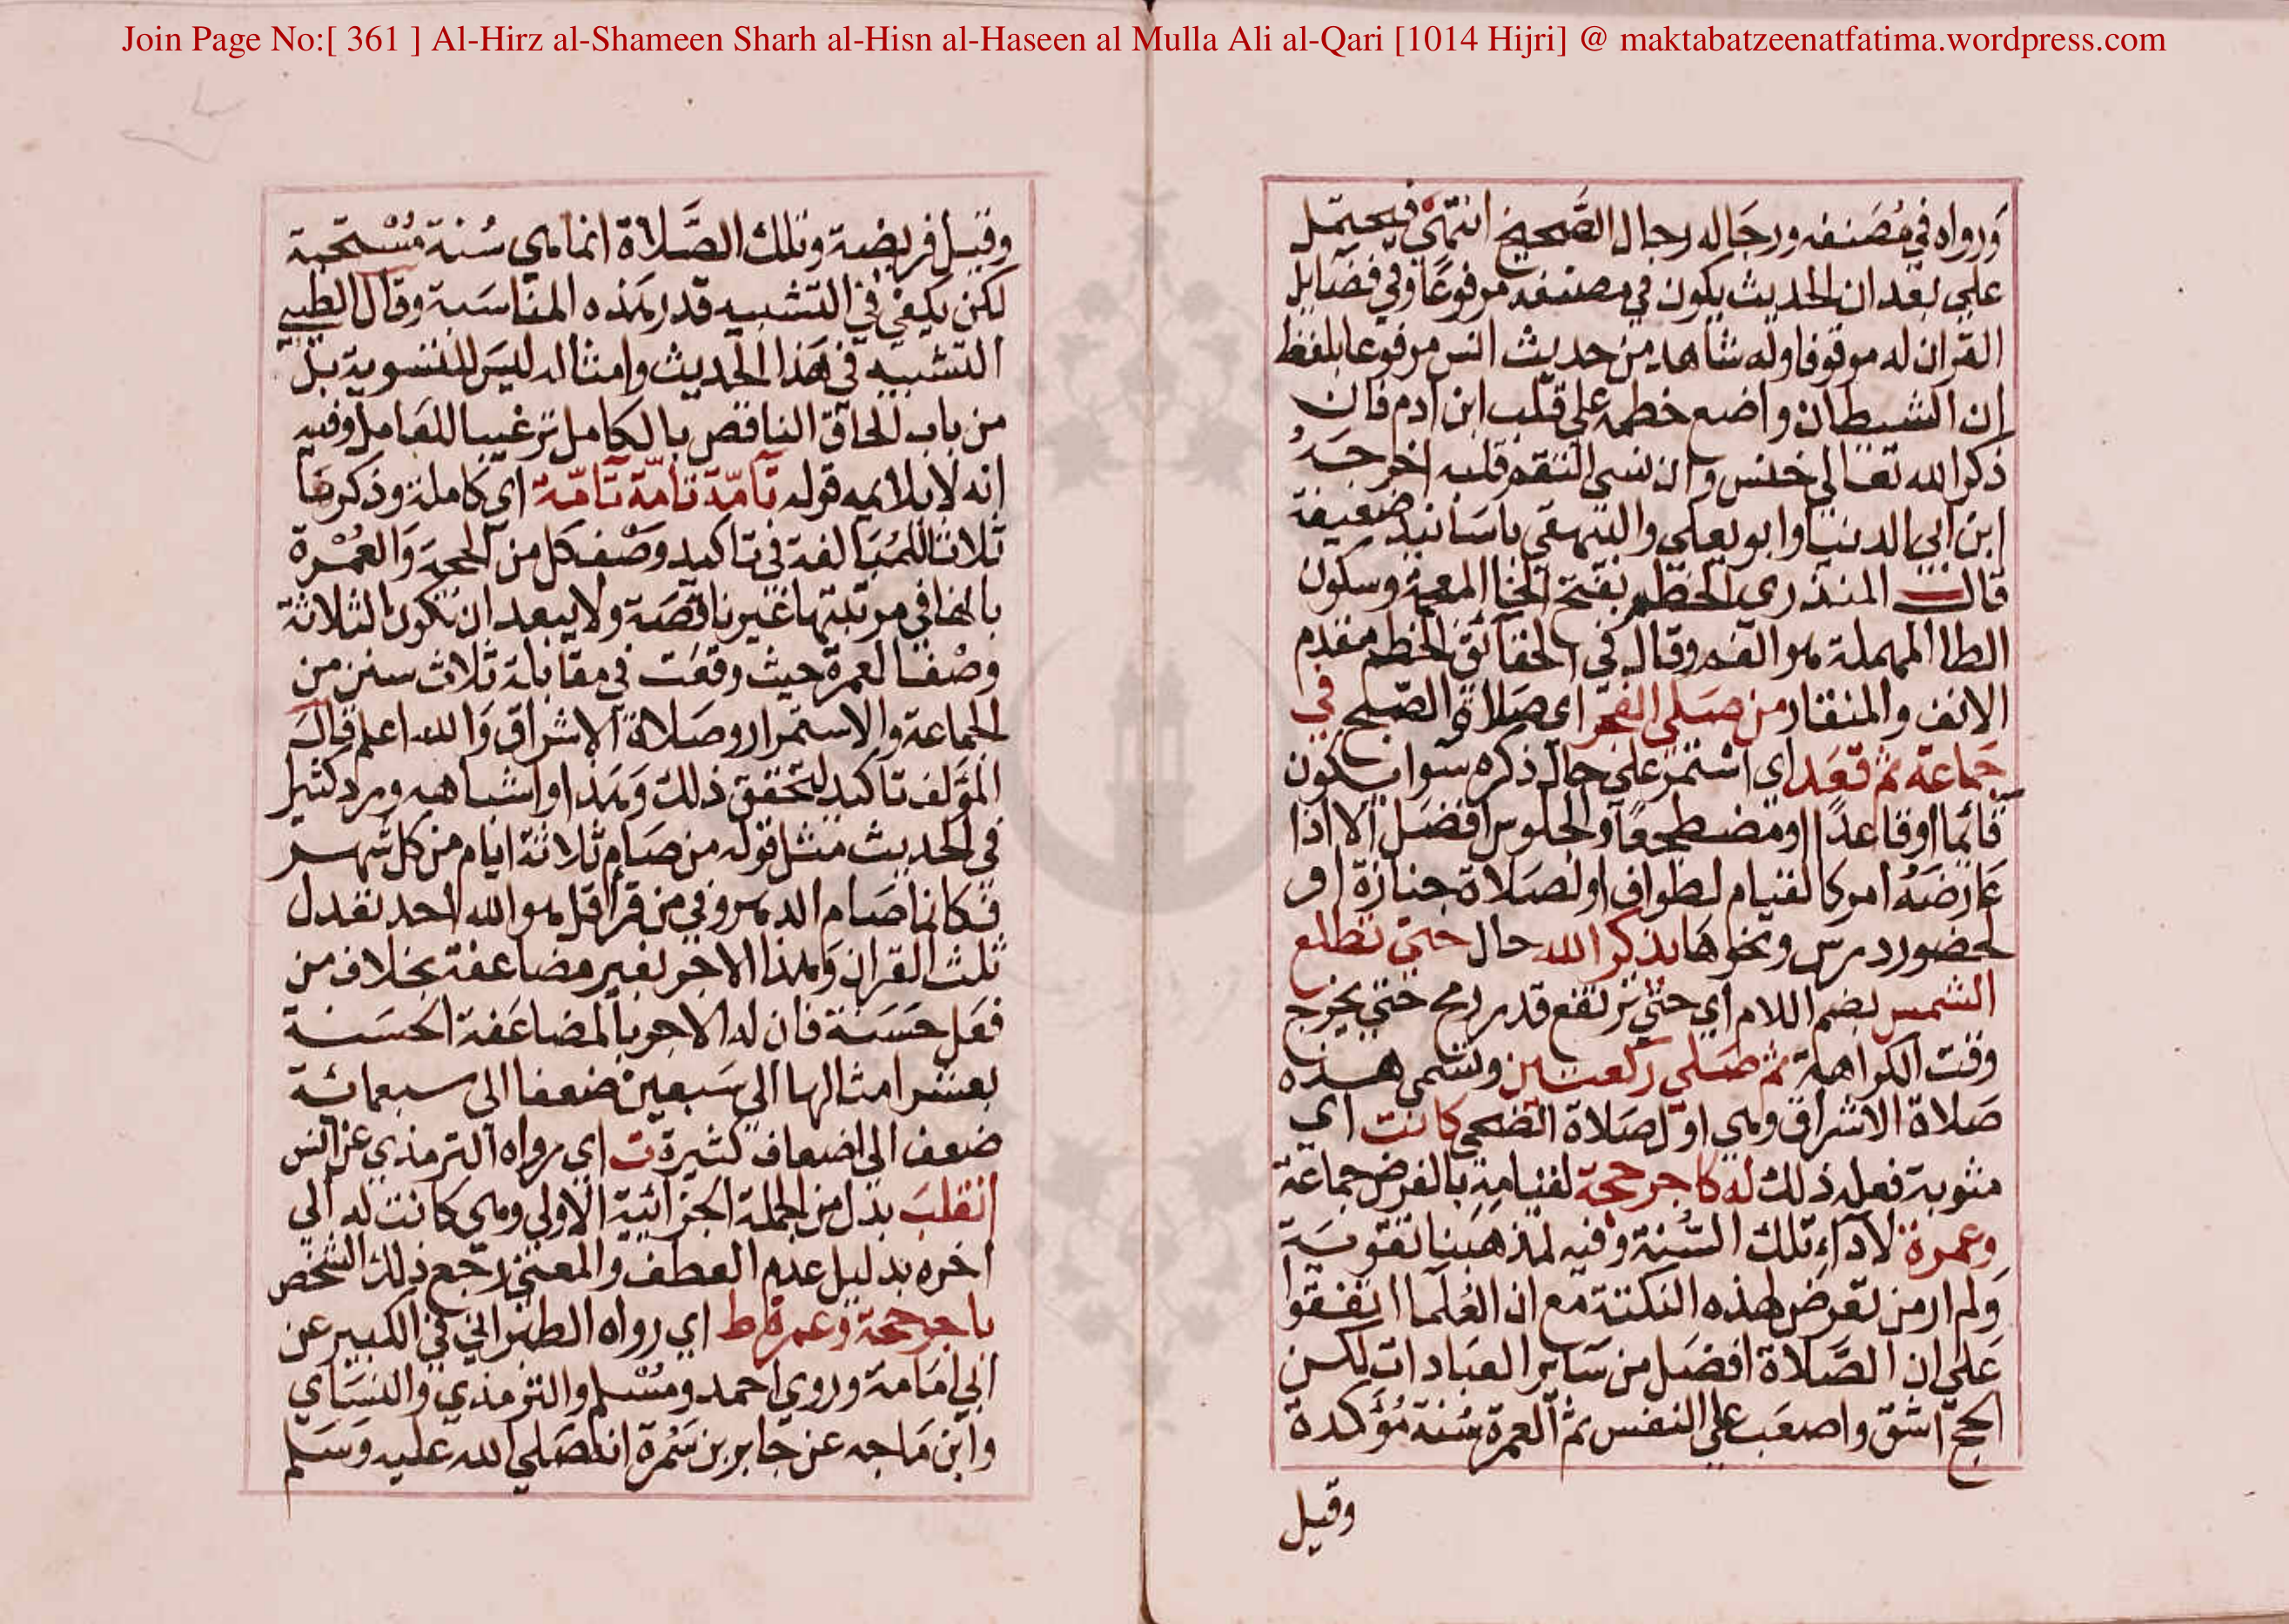 Join Page No:[ 361 ] Al-Hirz al-Shameen Sharh al-Hisn al-Haseen al Mulla Ali al-Qari [1014 Hijri] @ maktabatzeenatfatima.wordpress.com
ورواه في مصنفه ورجاله رجال الصحيح انتهى فيحتمل
على بعد ان الحديث يكون في مصنفه مرفوعا وفي فضايل
القران له موقوفا وله شاهد من حديث انس مرفوعا بلفظ
ان الشيطان واضع خطمه على قلب ابن ادم فان
ذكر الله تعالى خنس وان نسي التقم قلبه اخرجه
ابن ابي الدنيا وابو يعلى والبيهقي باسانيد ضعيفة
قال المنذري الخطم بفتح الخا المعجمة وسكون
الطا المهملة هو الفم وقال في الحقائق الخطم مقدم
الانف والمنقار من صلى الفجر اي صلاة الصبح في
جماعة ثم قعد اي استمر على حال ذكره سوا يكون
قائما او قاعدا او مضطجعا والجلوس افضل الا اذا
عارضه امر كالقيام لطواف او لصلاة جنازة او
لحضور درس ونحوها يذكر الله حال حتى تطلع
الشمس بضم اللام اي حتى ترتفع قدر رمح حتى يخرج
وقت الكراهة ثم صلى ركعتين وتسمى هذه
صلاة الاشراق وهي اول صلاة الضحى كانت اي
مثوبة فعله ذلك له كاجر حجة لقيامه بالفرض جماعة
وعمرة لاداء تلك السنة وفيه لمذهبنا تقوية
ولم ار من تعرض لهذه النكتة مع ان العلما اتفقوا
على ان الصلاة افضل من ساير العبادات لكن
الحج اشق واصعب على النفس ثم العمرة سنة مؤكدة
وقيل
وقيل فريضة وتلك الصلاة انما هي سنة مستحبة
لكن يكفي في التشبيه قدر هذه المناسبة وقال الطيبي
التشبيه في هذا الحديث وامثاله ليس للتسوية بل
من باب الحاق الناقص بالكامل ترغيبا للعامل وفيه
انه لا يلايمه قوله تامة تامة تامة اي كاملة وذكرها
ثلاثا للمبالغة في تاكيد وصف كل من الحجة والعمرة
بانها في مرتبتها غير ناقصة ولا يبعد ان تكون الثلاثة
وصفا لعمرة حيث وقعت في مقابلة ثلاث سنن من
الجماعة والاستمرار وصلاة الاشراق والله اعلم قال
المؤلف تاكيد لتحقق ذلك وهذا واشباهه ورد كثيرا
في الحديث مثل قوله من صيام ثلاثة ايام من كل شهر
فكانما صام الدهر وفي من قرا قل هو الله احد تعدل
ثلث القران وهذا الاجر بغير مضاعفة بخلاف من
فعل حسنة فان له الاجر بالمضاعفة الحسنة
بعشر امثالها الى سبعين ضعفا الى سبعمائة
ضعف الى اضعاف كثيرة ت اي رواه الترمذي عن انس
انقلب بدل من الجملة الجزائية الاولى وهي كانت له الى
اخره بدليل عدم العطف والمعنى رجع ذلك الشخص
باجر حجة وعمرة ط اي رواه الطبراني في الكبير عن
ابي امامة وروى احمد ومسلم والترمذي والنساي
وابن ماجه عن جابر بن سمرة انه صلى الله عليه وسلم